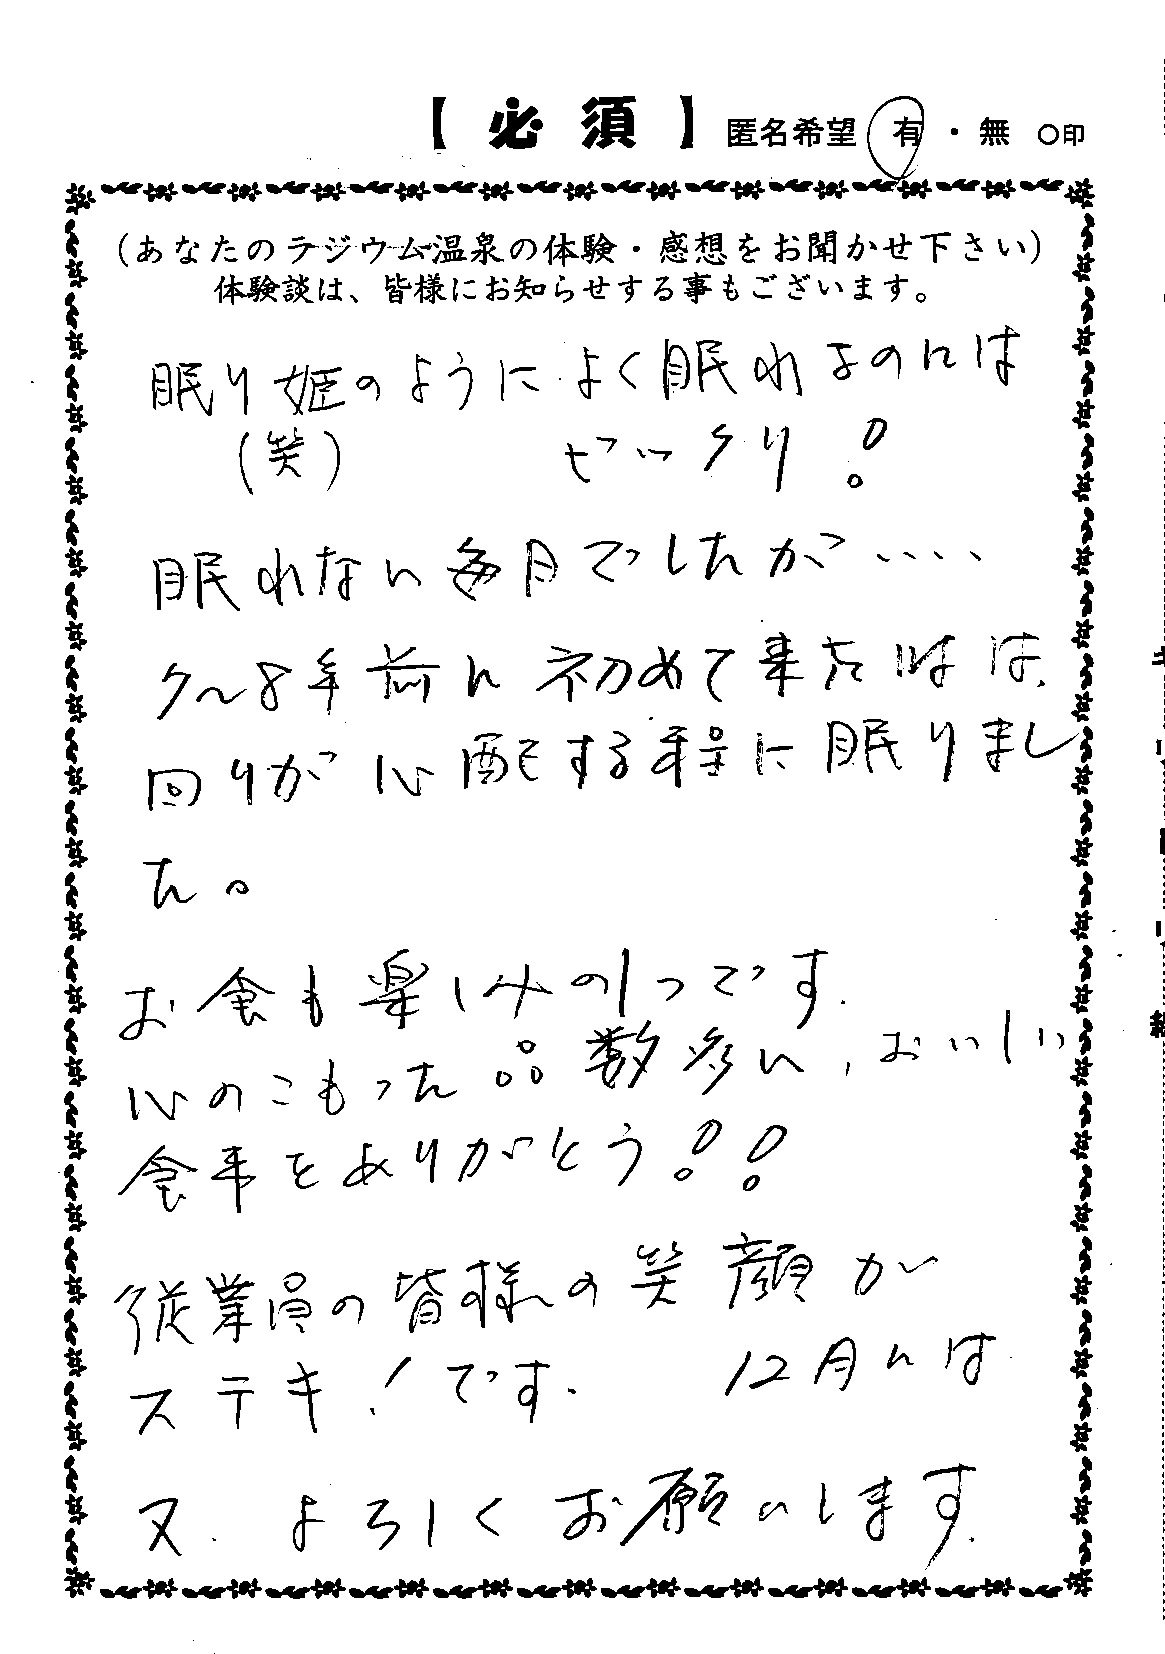 【 必 須 】 匿名希望 有 ・ 無 ○印
(あなたのラジウム温泉の体験・感想をお聞かせ下さい)
体験談は、皆様にお知らせする事もございます。
眠り姫のように よく眠れるのには
(笑) ビックリ!
眠れない毎日でしたが‥‥
7〜8年前に初めて来た時は、
回りが心配する程に眠りまし
た。
お食も楽しみの1つです.
心のこもった品数多い、おいしい
食事をありがとう!!
従業員の皆様の笑顔が
ステキ!です. 12月には
又、よろしくお願いします.